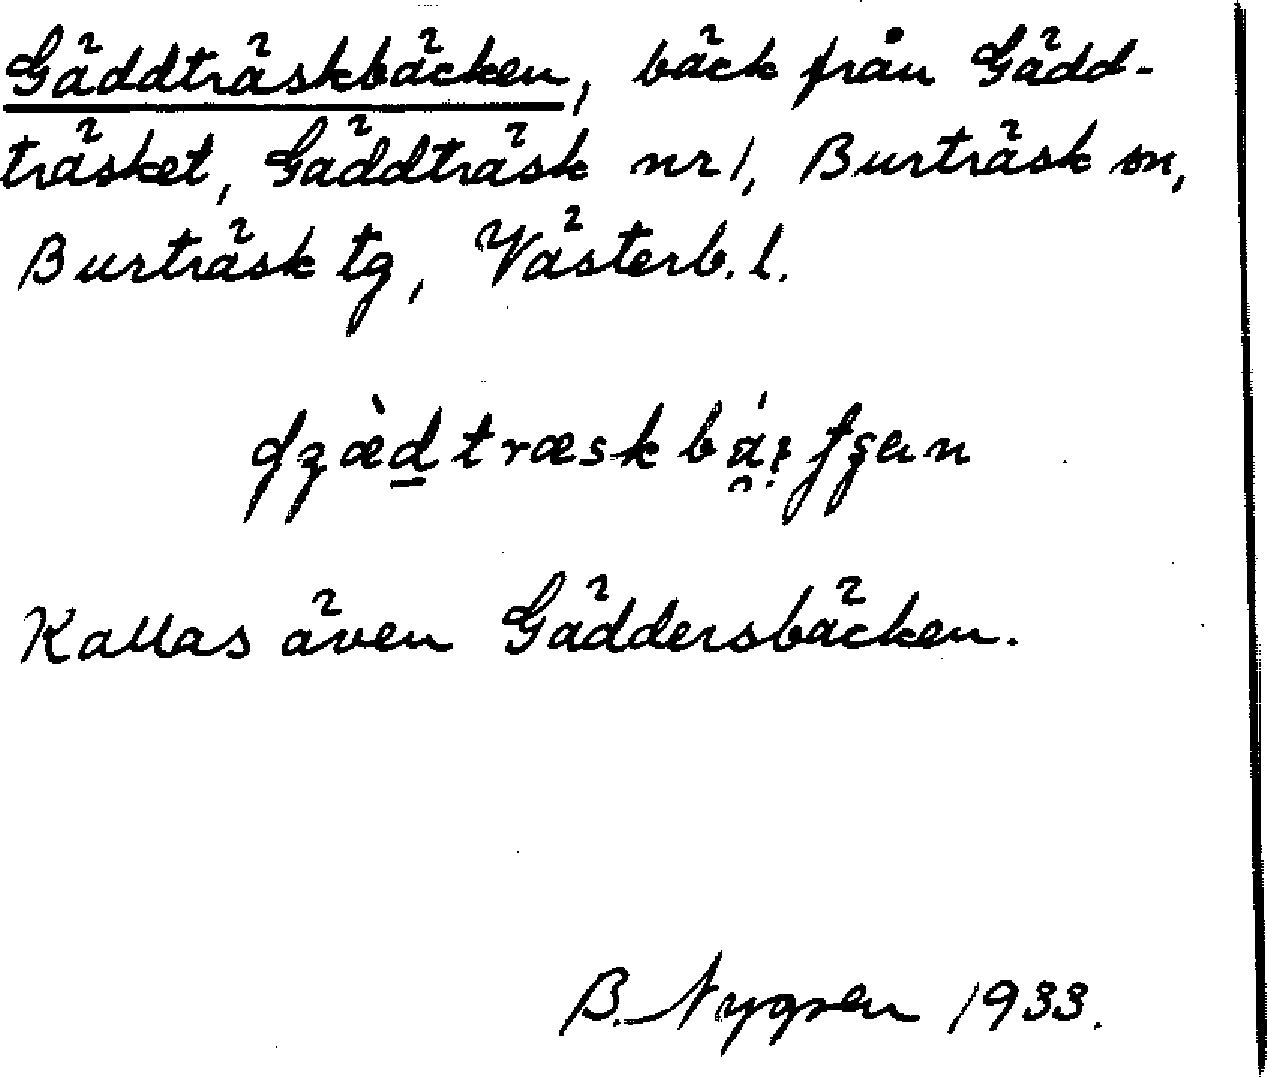 Gäddträskbäcken, bäck från Gädd-
träsket, Gäddträsk nr 1, Burträsk sn,
Burträsk tg, Västerb. l.
Kallas även Gäddersbäcken.
B. Nygren 1933.